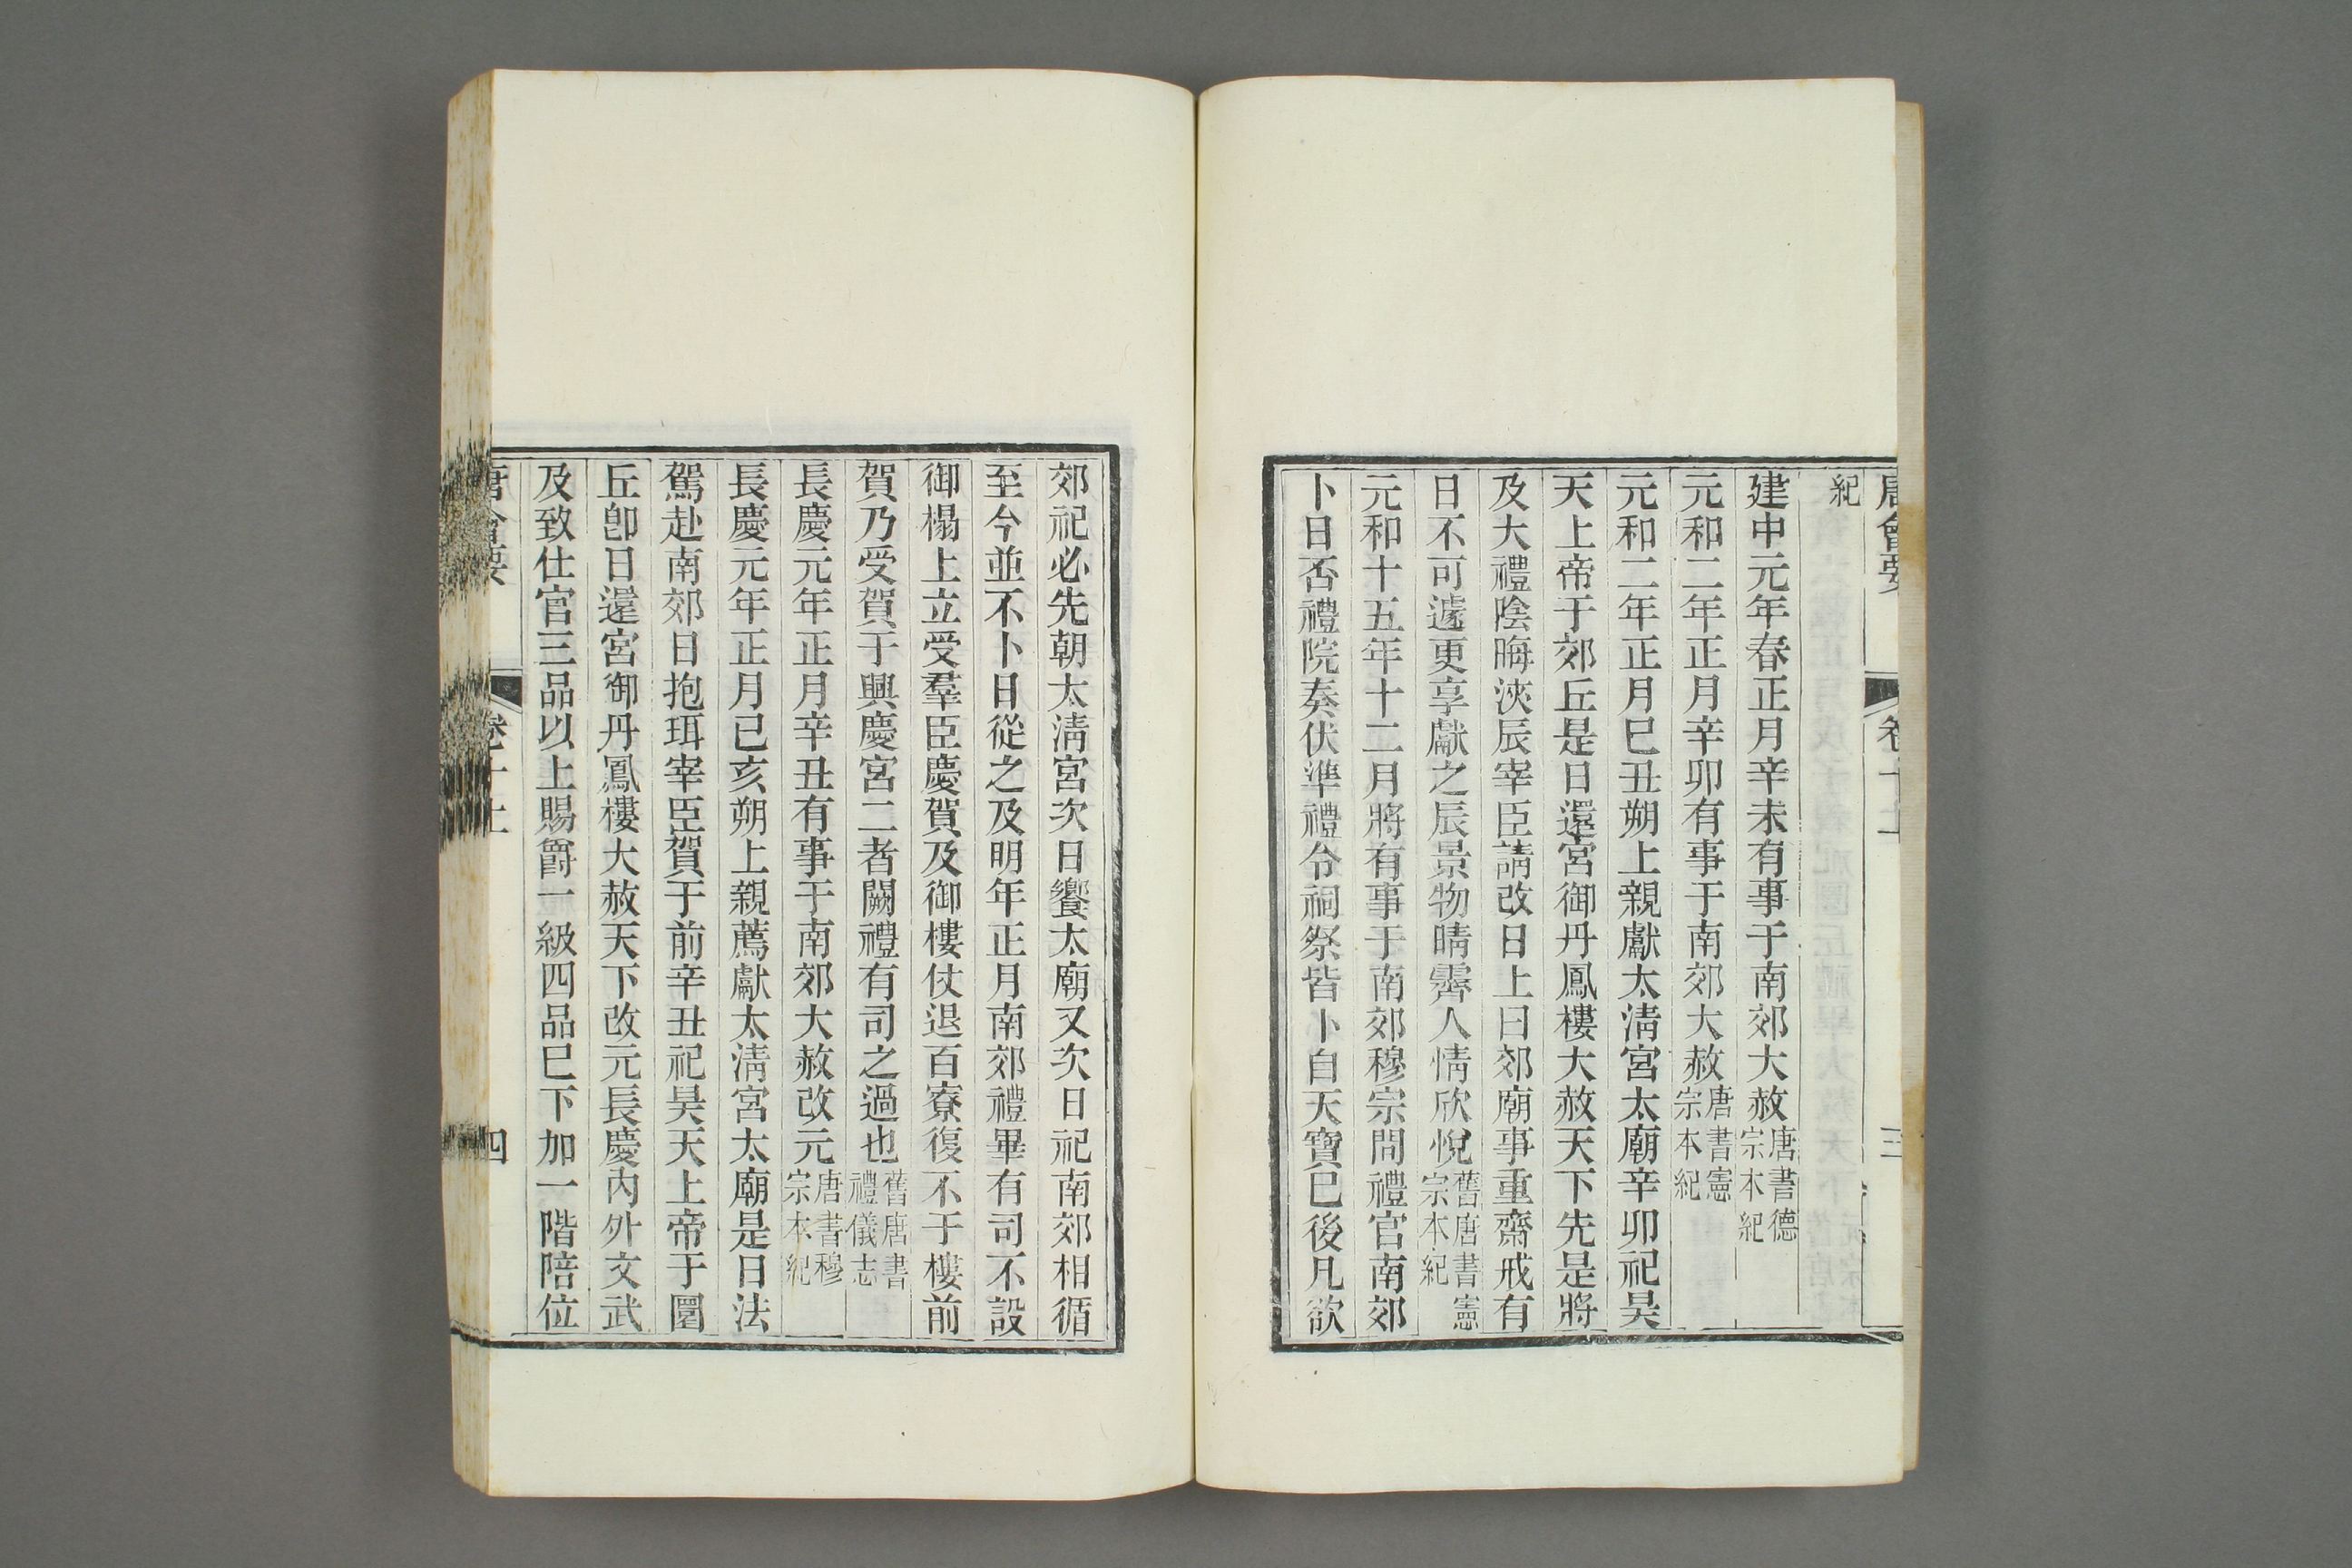 唐會要 卷十上 三
紀
建中元年春正月辛未有事于南郊大赦唐書德宗本紀
元和二年正月辛卯有事于南郊大赦唐書憲宗本紀
元和二年正月巳丑朔上親獻太清宮太廟辛卯祀昊
天上帝于郊丘是日還宮御丹鳳樓大赦天下先是將
及大禮陰晦浹辰宰臣請改日上曰郊廟事重齋戒有
日不可遽更享獻之辰景物晴霽人情欣悅舊唐書憲宗本紀
元和十五年十二月將有事于南郊穆宗問禮官南郊
卜日否禮院奏伏準禮令祠祭皆卜自天寶巳後凡欲
郊祀必先朝太清宮次日饗太廟又次日祀南郊相循
至今並不卜日從之及明年正月南郊禮畢有司不設
御榻上立受羣臣慶賀及御樓仗退百寮復不于樓前
賀乃受賀于興慶宮二者闕禮有司之過也舊唐書禮儀志
長慶元年正月辛丑有事于南郊大赦改元唐書穆宗本紀
長慶元年正月己亥朔上親薦獻太清宮太廟是日法
駕赴南郊日抱珥宰臣賀于前辛丑祀昊天上帝于圜
丘卽日還宮御丹鳳樓大赦天下改元長慶內外文武
及致仕官三品以上賜爵一級四品巳下加一階陪位
唐會要 卷十上 四